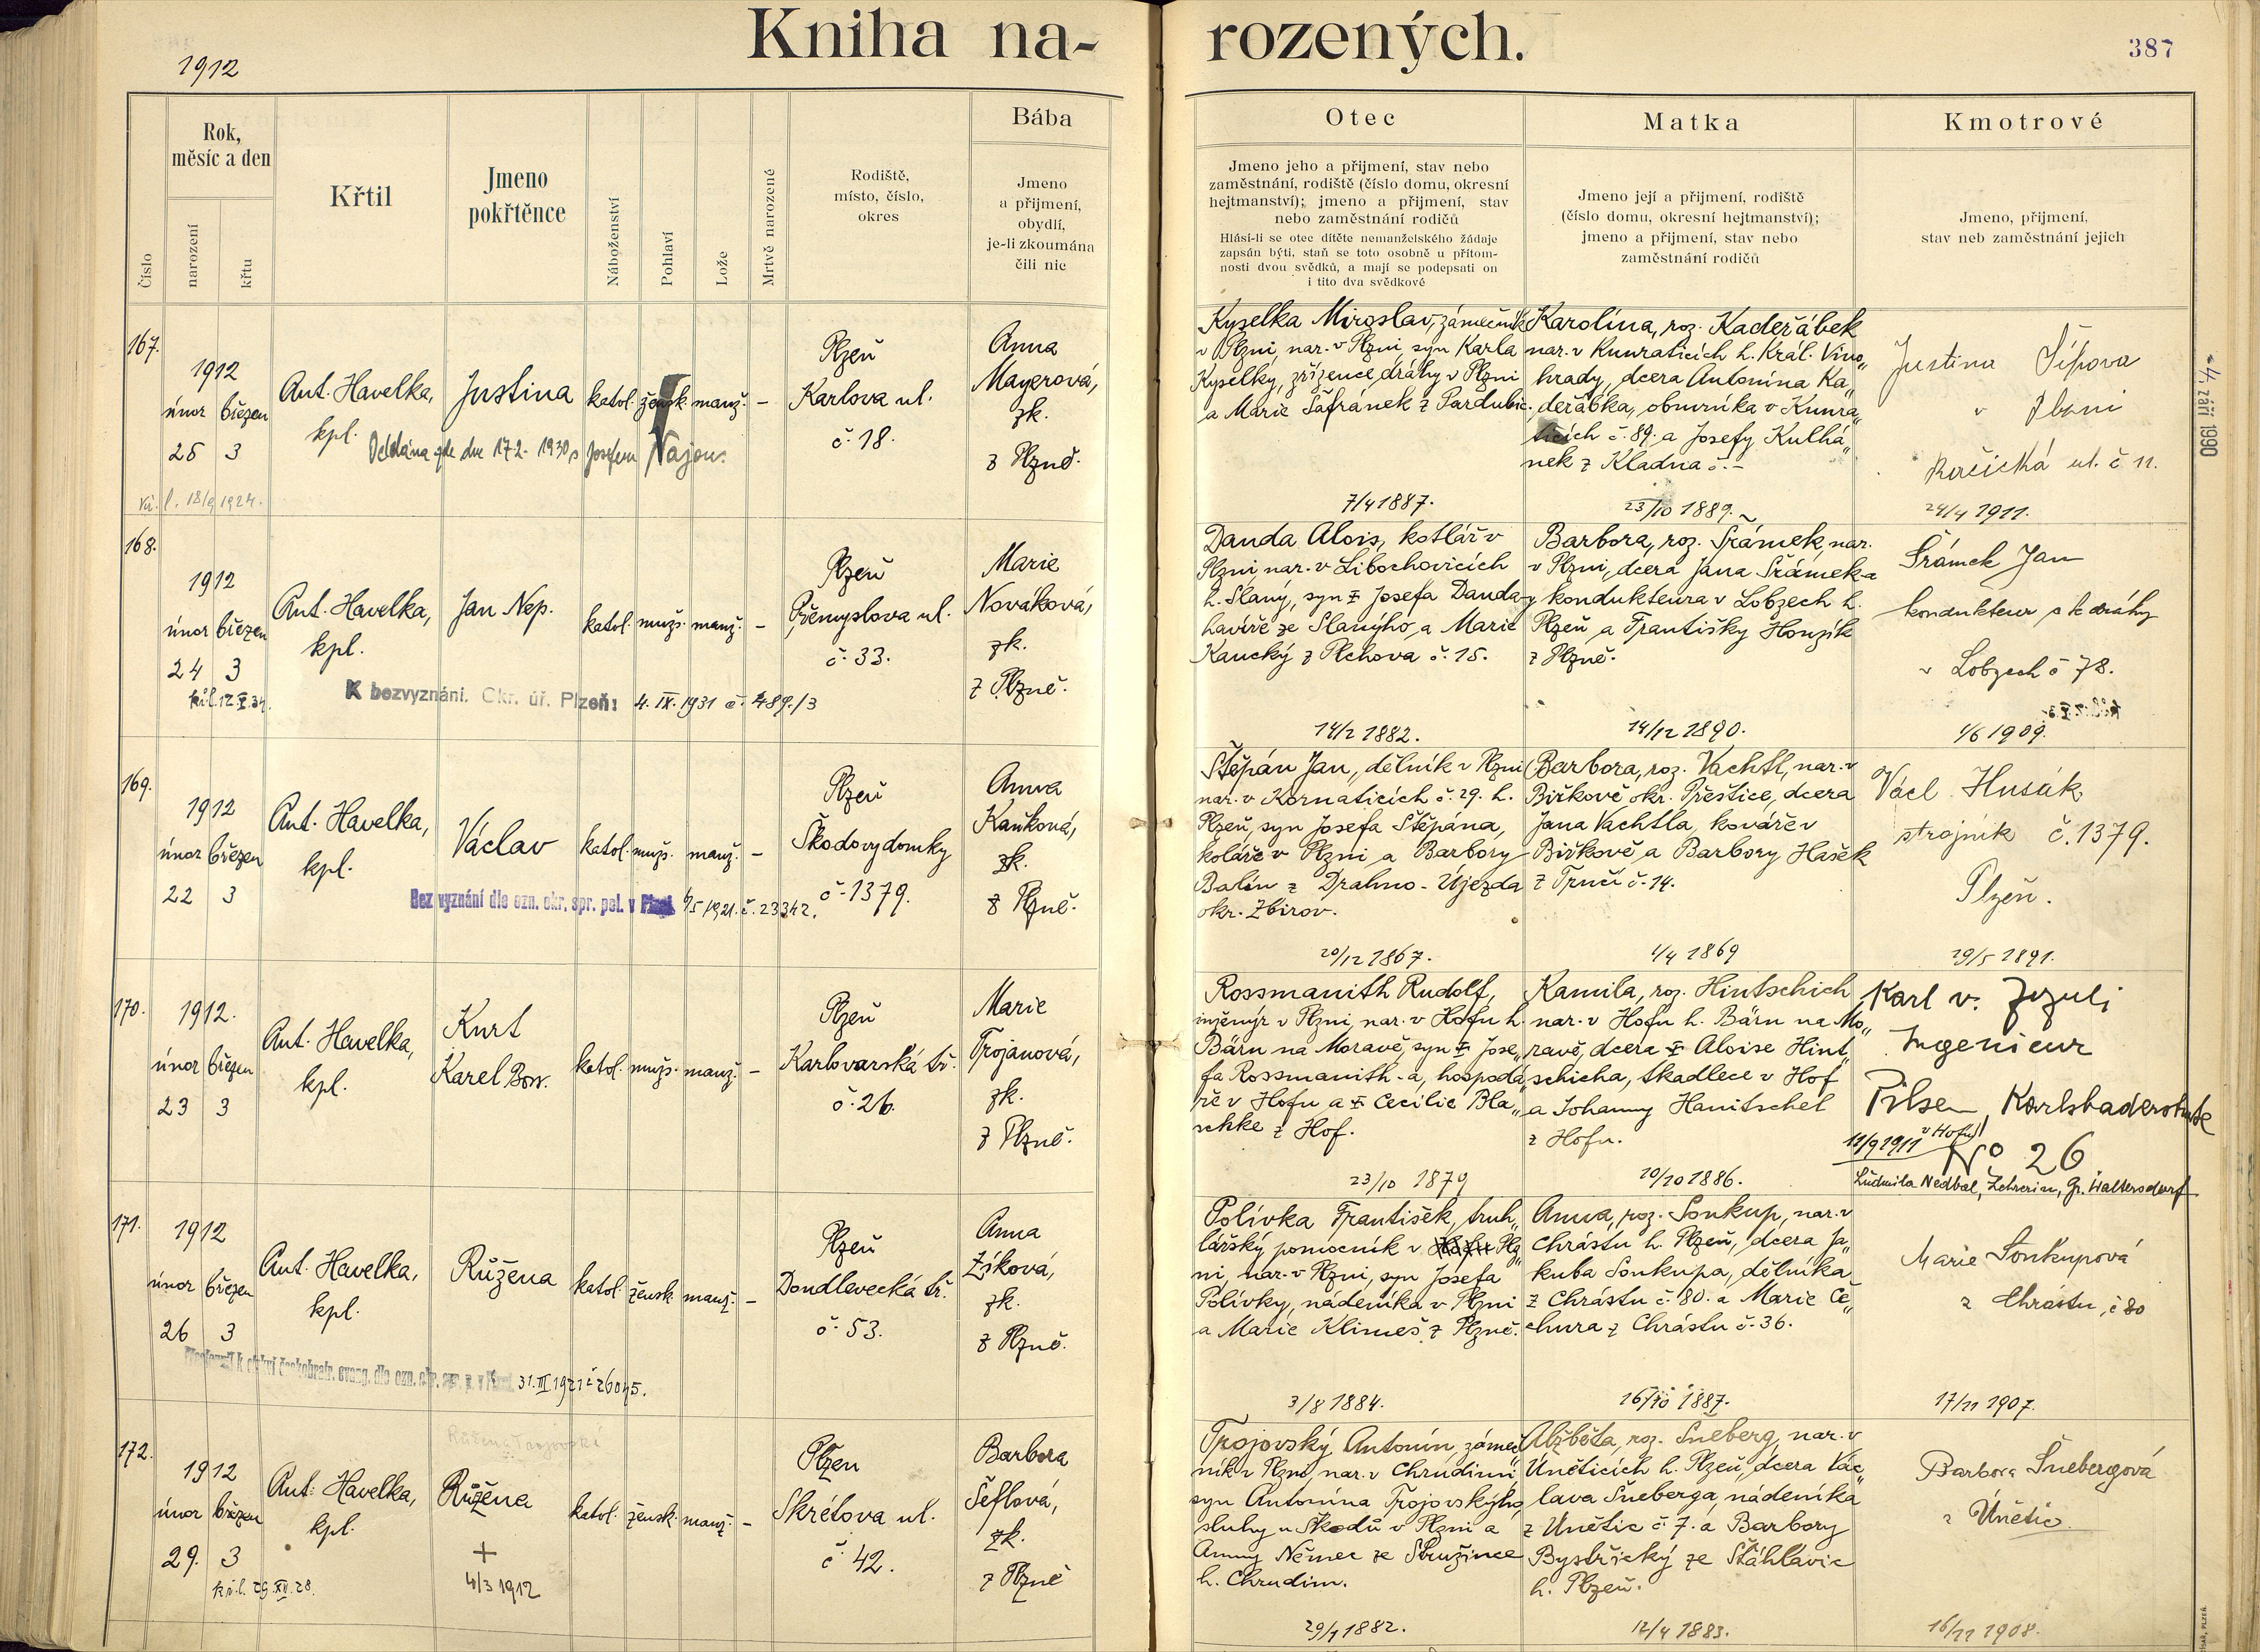 1912
Kniha na-
rozených.
387
Číslo
Rok,
měsíc a den
narození
křtu
Křtil
Jmeno
pokřtěnce
Náboženství
Pohlaví
Lože
Mrtvě narozené
Rodiště,
místo, číslo,
okres
Bába
Jmeno
a přijmení,
obydlí,
je-li zkoumána
čili nic
Otec
Jmeno jeho a přijmení, stav nebo
zaměstnání, rodiště (číslo domu, okresní
hejtmanství); jmeno a přijmení, stav
nebo zaměstnání rodičů
Hlásí-li se otec dítěte nemanželského žádaje
zapsán býti, staň se toto osobně u přítom-
nosti dvou svědků, a mají se podepsati on
i tito dva svědkové
Matka
Jmeno její a přijmení, rodiště
(číslo domu, okresní hejtmanství);
jmeno a přijmení, stav nebo
zaměstnání rodičů
Kmotrové
Jmeno, přijmení,
stav neb zaměstnání jejich
-4. září 1990
167.
1912
únor březen
25 3
Ant. Havelka,
kpl.
Justina
katol. žensk. manž. -
Oddána zde dne 17.2. 1930 s Josefem
18/9 1924.
Plzeň
Karlova ul.
č. 18.
Anna
Mayerová,
zk.
z Plzně.
Kyselka Miroslav, zámečník
v Plzni, nar. v Plzni, syn Karla
Kyselky, zřízence dráhy v Plzni
a Marie Šafránek z Pardubic.
7/4 1887.
Karolina, roz. Kadeřábek
nar. v Kunraticích h. Král. Vino„
hrady, dcera Antonína Ka„
deřábka, obuvníka v Kunra„
ticích č. 89. a Josefy Kulhá„
nek z Kladna č. -
23/10 1889.
Justina Šípova
v Plzni
ul. č 11.
24/4 1911.
168.
1912
únor březen
24 3
Ant. Havelka,
kpl.
Jan Nep.
katol. mužs. manž. -
K bezvyznání. Okr. úř. Plzeň: 4. IX. 1931 č. 489./3
Plzeň
Přemyslova ul.
č. 33.
Marie
Nováková,
zk.
z Plzně.
Danda Alois, kotlář v
Plzni, nar. v Libochovicích
h. Slaný, syn † Josefa Danda-y
havíře ze Slanýho, a Marie
Kaucký z Plchova č. 15.
14/2 1882.
Barbora, roz. Šrámek, nar.
v Plzni, dcera Jana Šrámek-a
kondukteura v Lobzech h.
Plzeň a Františky Honzík
z Plzně.
14/12 1890.
Šrámek Jan
kondukteur s k dráhy
v Lobzech č 78.
1/6 1909.
169.
1912
únor březen
22 3
Ant. Havelka,
kpl.
Václav
katol. mužs. manž. -
Bez vyznání dle ozn. okr. spr. pol. v Plzni 1921. č. 23342.
Plzeň
Škodovy domky
č. 1379.
Anna
Kaňková,
zk.
z Plzně.
Štěpán Jan, dělník v Plzni
nar. v Kornaticích č. 29. h.
Plzeň, syn Josefa Štěpána,
koláře v Plzni a Barbory
Balín z Drahno-Újezda
okr. Zbirov.
20/12 1867.
Barbora, roz. Vachtl, nar. v
Biřkově okr. Přeštice, dcera
Jana Vachtla, kováře v
Biřkově a Barbory Hašek
z Trnčí č. 14.
1/4 1869
Václ Husák
strojník č. 1379.
Plzeň.
29/5 1891.
170.
1912.
únor březen
23 3
Ant. Havelka,
kpl.
Kurt
Karel Bor.
katol. mužs. manž. -
Plzeň
Karlovarská tř.
č. 26.
Marie
Trojanová,
zk.
z Plzně.
Rossmanith Rudolf,
inženýr v Plzni, nar. v Hofu h.
Bärn na Moravě, syn † Jose„
fa Rossmanith-a, hospodá„
ře v Hofu a † Cecilie Bla„
schke z Hof.
23/10 1879
Kamila, roz. Hintschich
nar. v Hofu h. Bärn na Mo„
ravě, dcera † Aloise Hint„
schicha, tkadlece v Hof
a Johanny Hanitschel
z Hofu.
20/10 1886.
Karl v.
Ingenieur
Pilsen, Karlsbaderstraße
No 26
11/9 1911 v Hofu
Ludmila Nedbal, Lehrerin, Gr. Waltersdorf
171.
1912
únor březen
26 3
Ant. Havelka,
kpl.
Růžena
katol. žensk. manž. -
církvi českobratr. evang. dle ozn. 31. III 1921 č 26045.
Plzeň
Doudlevecká tř.
č. 53.
Anna
Zíková,
zk.
z Plzně.
Polívka František, truh„
lářský pomocník v Plz„
ni, nar. v Plzni, syn Josefa
Polívky, nádeníka v Plzni
a Marie Klimeš z Plzně.
3/8 1884.
Anna, roz. Soukup, nar. v
Chrástu h. Plzeň, dcera Ja„
kuba Soukupa, dělníka
z Chrástu č. 80. a Marie Če„
chura z Chrástu č. 36.
16/10 1887.
Marie Soukupová
z Chrastu, č 80
17/11 1907.
172.
1912
únor březen
29. 3
Ant. Havelka,
kpl.
Růžena Trojovská
Růžena
+
4/3 1912
katol. žensk. manž. -
Plzen
Skrétova ul.
č. 42.
Barbora
Šeflová,
zk.
z Plzně
Trojovský Antonín, zámeč„
ník v Plzni, nar. v Chrudimi,
syn Antonína Trojovskýho,
sluhy u Škodů v Plzni a
Anny Němec ze Stružince
h. Chrudim.
29/7 1882.
Alžběta, roz. Šneberg, nar. v
Úněticích h. Plzeň, dcera Vác„
lava Šneberga, nádeníka
z Únětic č. 7. a Barbory
Bystřický ze Štáhlavic
h. Plzeň.
12/4 1883.
Barbora Šnebergová
z Únětic
16/11 1908.